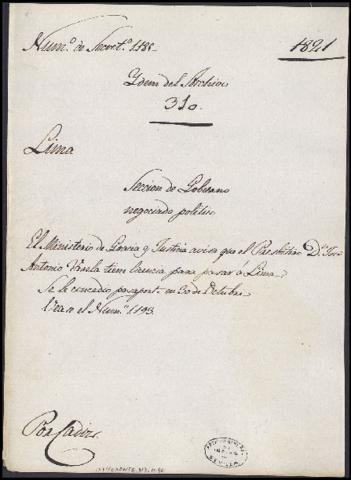 Num.º de Invent.º 1186.
1821
Ydem del Archivo
310.
Lima
Seccion de Gobierno
negociado politico
El Ministerio de Gracia y Justicia avisa que el Presbitero D.n José
Antonio Varela tiene licencia para pasar á Lima.
Se le concedio pasaporte en 30 de Octubre
Vease el Num.º 1193.
Por Cadiz.
SEVILLA